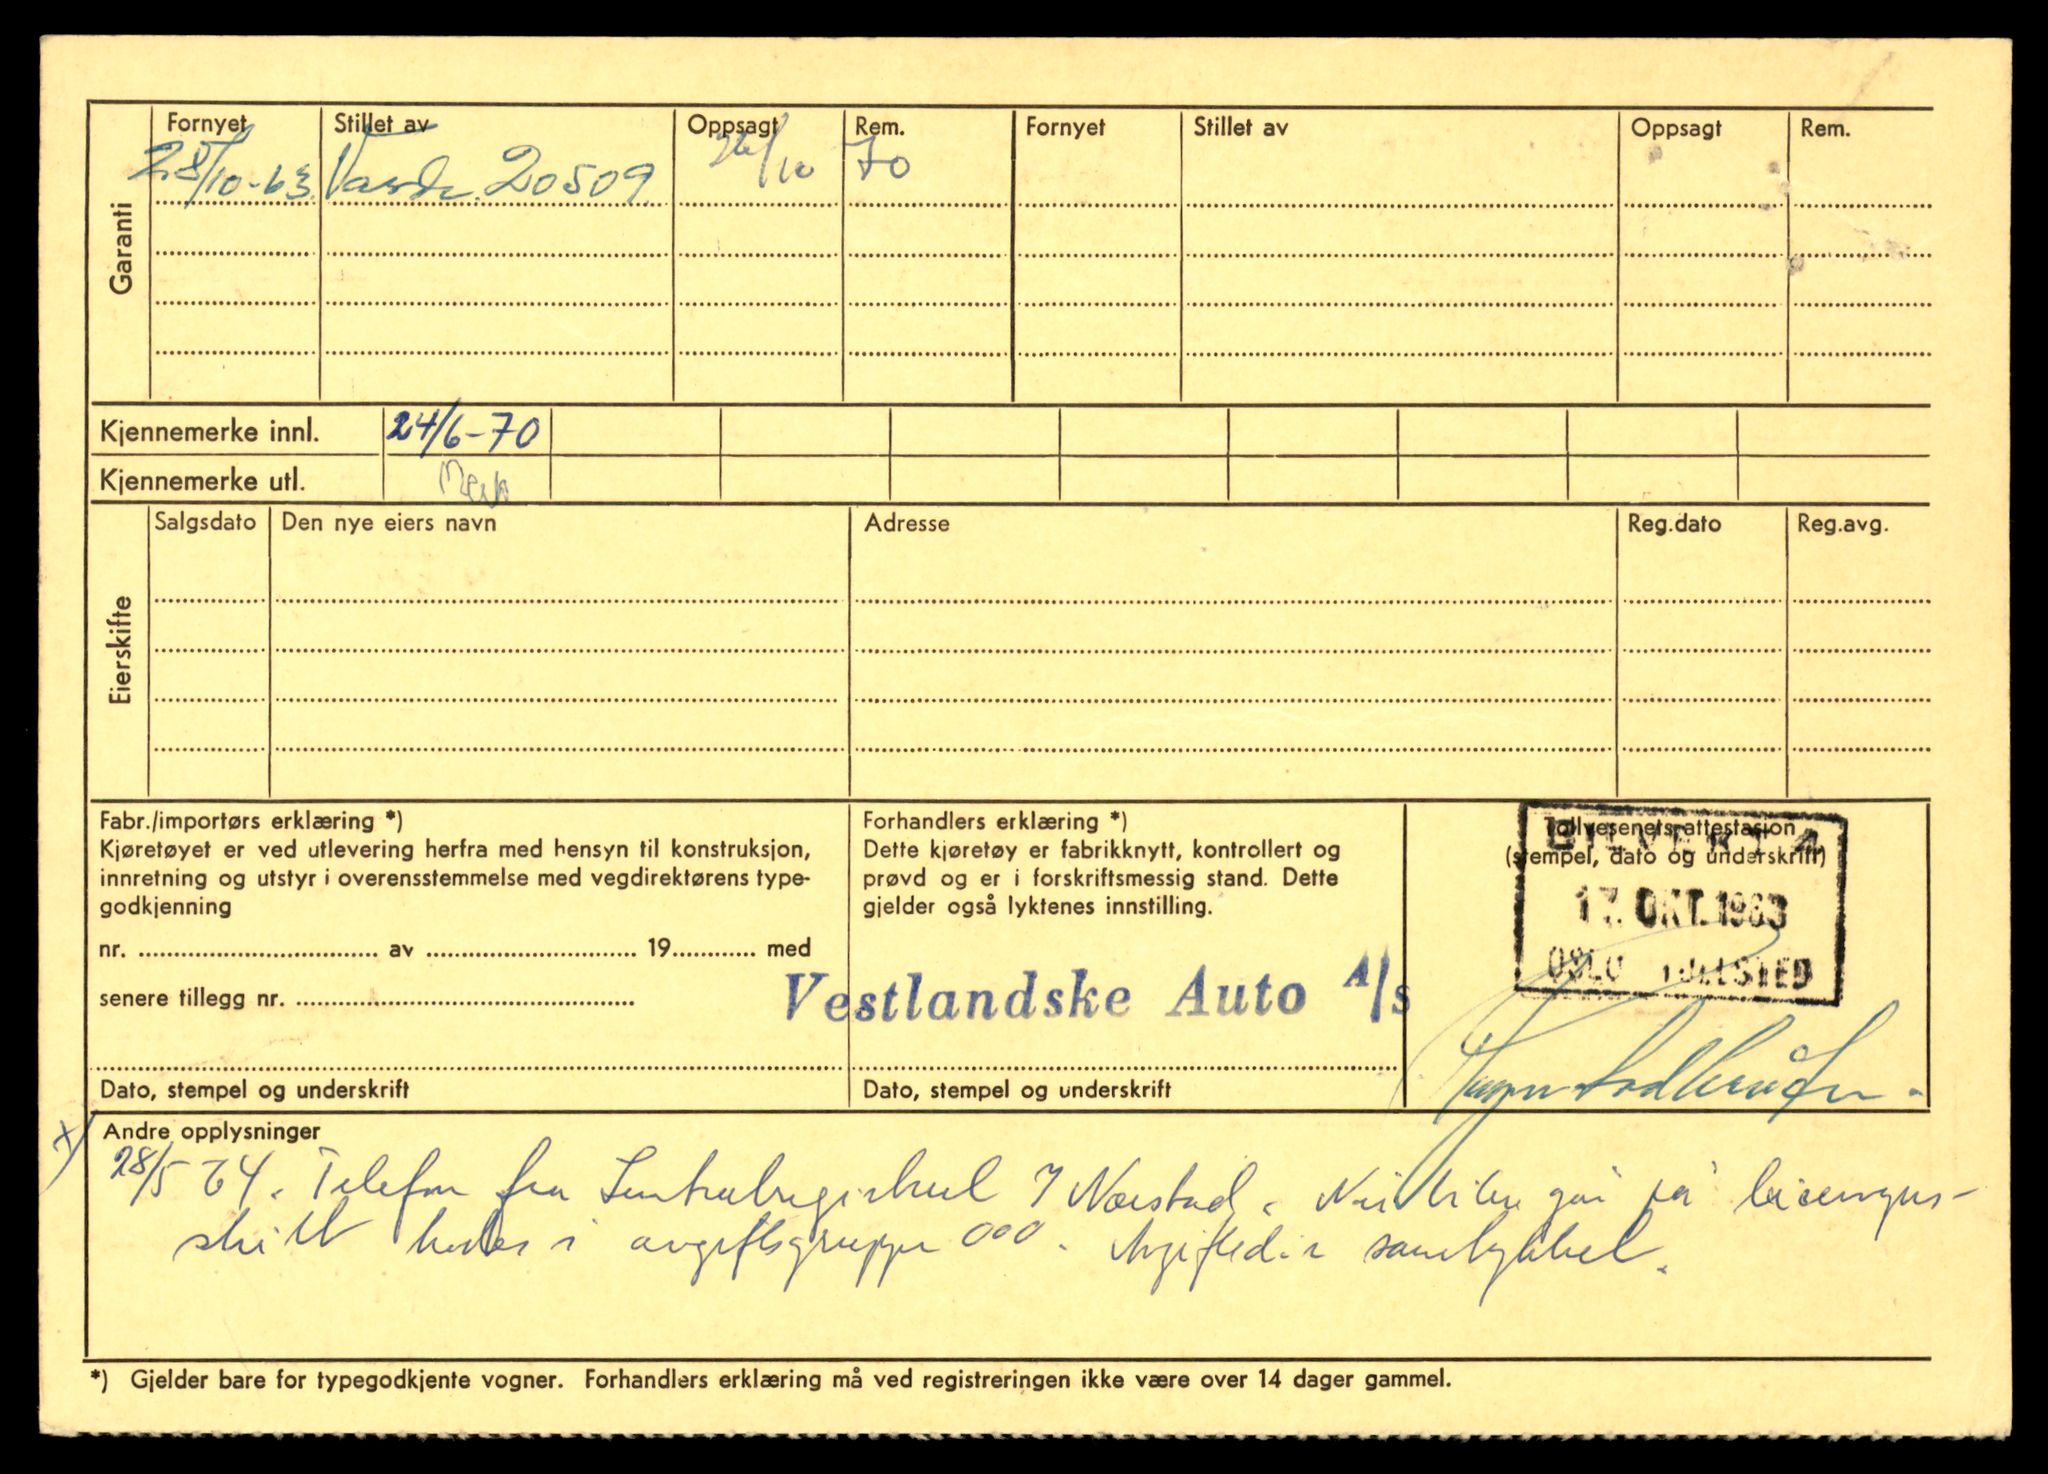 Fornyet Stillet av Oppsagt Rem. Fornyet Stillet av Oppsagt Rem.
28/10-63. 20509. 26/10 70
Garanti
Kjennemerke innl. 24/6-70
Kjennemerke utl.
Eierskifte
Salgsdato Den nye eiers navn Adresse Reg.dato Reg.avg.
Fabr./importørs erklæring *)
Kjøretøyet er ved utlevering herfra med hensyn til konstruksjon,
innretning og utstyr i overensstemmelse med vegdirektørens type-
godkjenning
nr. av 19 med
senere tillegg nr.
Dato, stempel og underskrift
Forhandlers erklæring *)
Dette kjøretøy er fabrikknytt, kontrollert og
prøvd og er i forskriftsmessig stand. Dette
gjelder også lyktenes innstilling.
Vestlandske Auto A/s
Dato, stempel og underskrift
Tollvesenets attestasjon
(stempel, dato og underskrift)
17. OKT. 1963
OSLO TOLLSTED
x)
Andre opplysninger
28/5 64. Telefon fra Sentralregisteret
skilt i avgiftsgruppe 000.
*) Gjelder bare for typegodkjente vogner. Forhandlers erklæring må ved registreringen ikke være over 14 dager gammel.